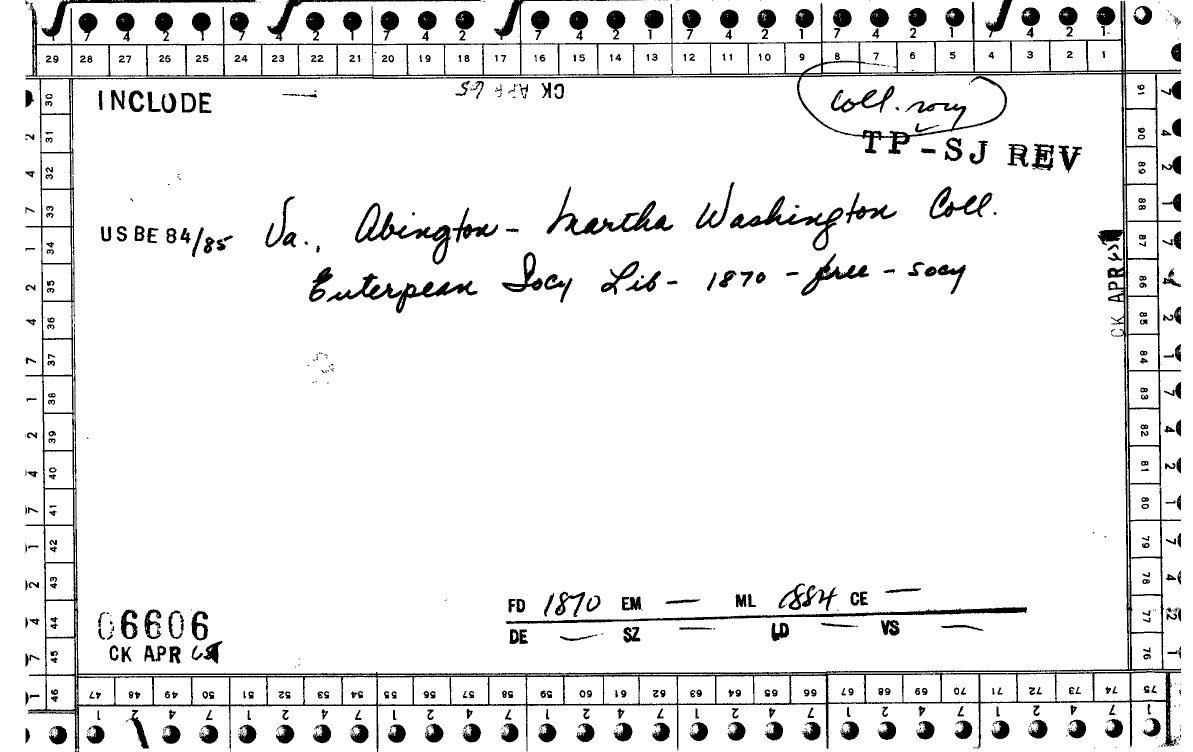 7 4 2 1 7 4 2 1 7 4 2 1 7 4 2 1 7 4 2 1 7 4 2 1 7 4 2 1
29 28 27 26 25 24 23 22 21 20 19 18 17 16 15 14 13 12 11 10 9 8 7 6 5 4 3 2 1
INCLUDE — CK APR 65 Coll. socy
TP-SJ REV
USBE 84/85 Va., Abington - Martha Washington Coll.
Euterpean Socy Lib - 1870 - free - socy
CK APR 65
FD 1870 EM — ML 1884 CE —
DE — SZ — LD — VS —
06606
CK APR 65
30 31 32 33 34 35 36 37 38 39 40 41 42 43 44 45 46
2 4 7 1 2 4 7 1 2 4 7 1 2 4 7 1
91 90 89 88 87 86 85 84 83 82 81 80 79 78 77 76 75
47 48 49 50 51 52 53 54 55 56 57 58 59 60 61 62 63 64 65 66 67 68 69 70 71 72 73 74 75
1 2 4 7 1 2 4 7 1 2 4 7 1 2 4 7 1 2 4 7 1 2 4 7 1 2 4 7 1